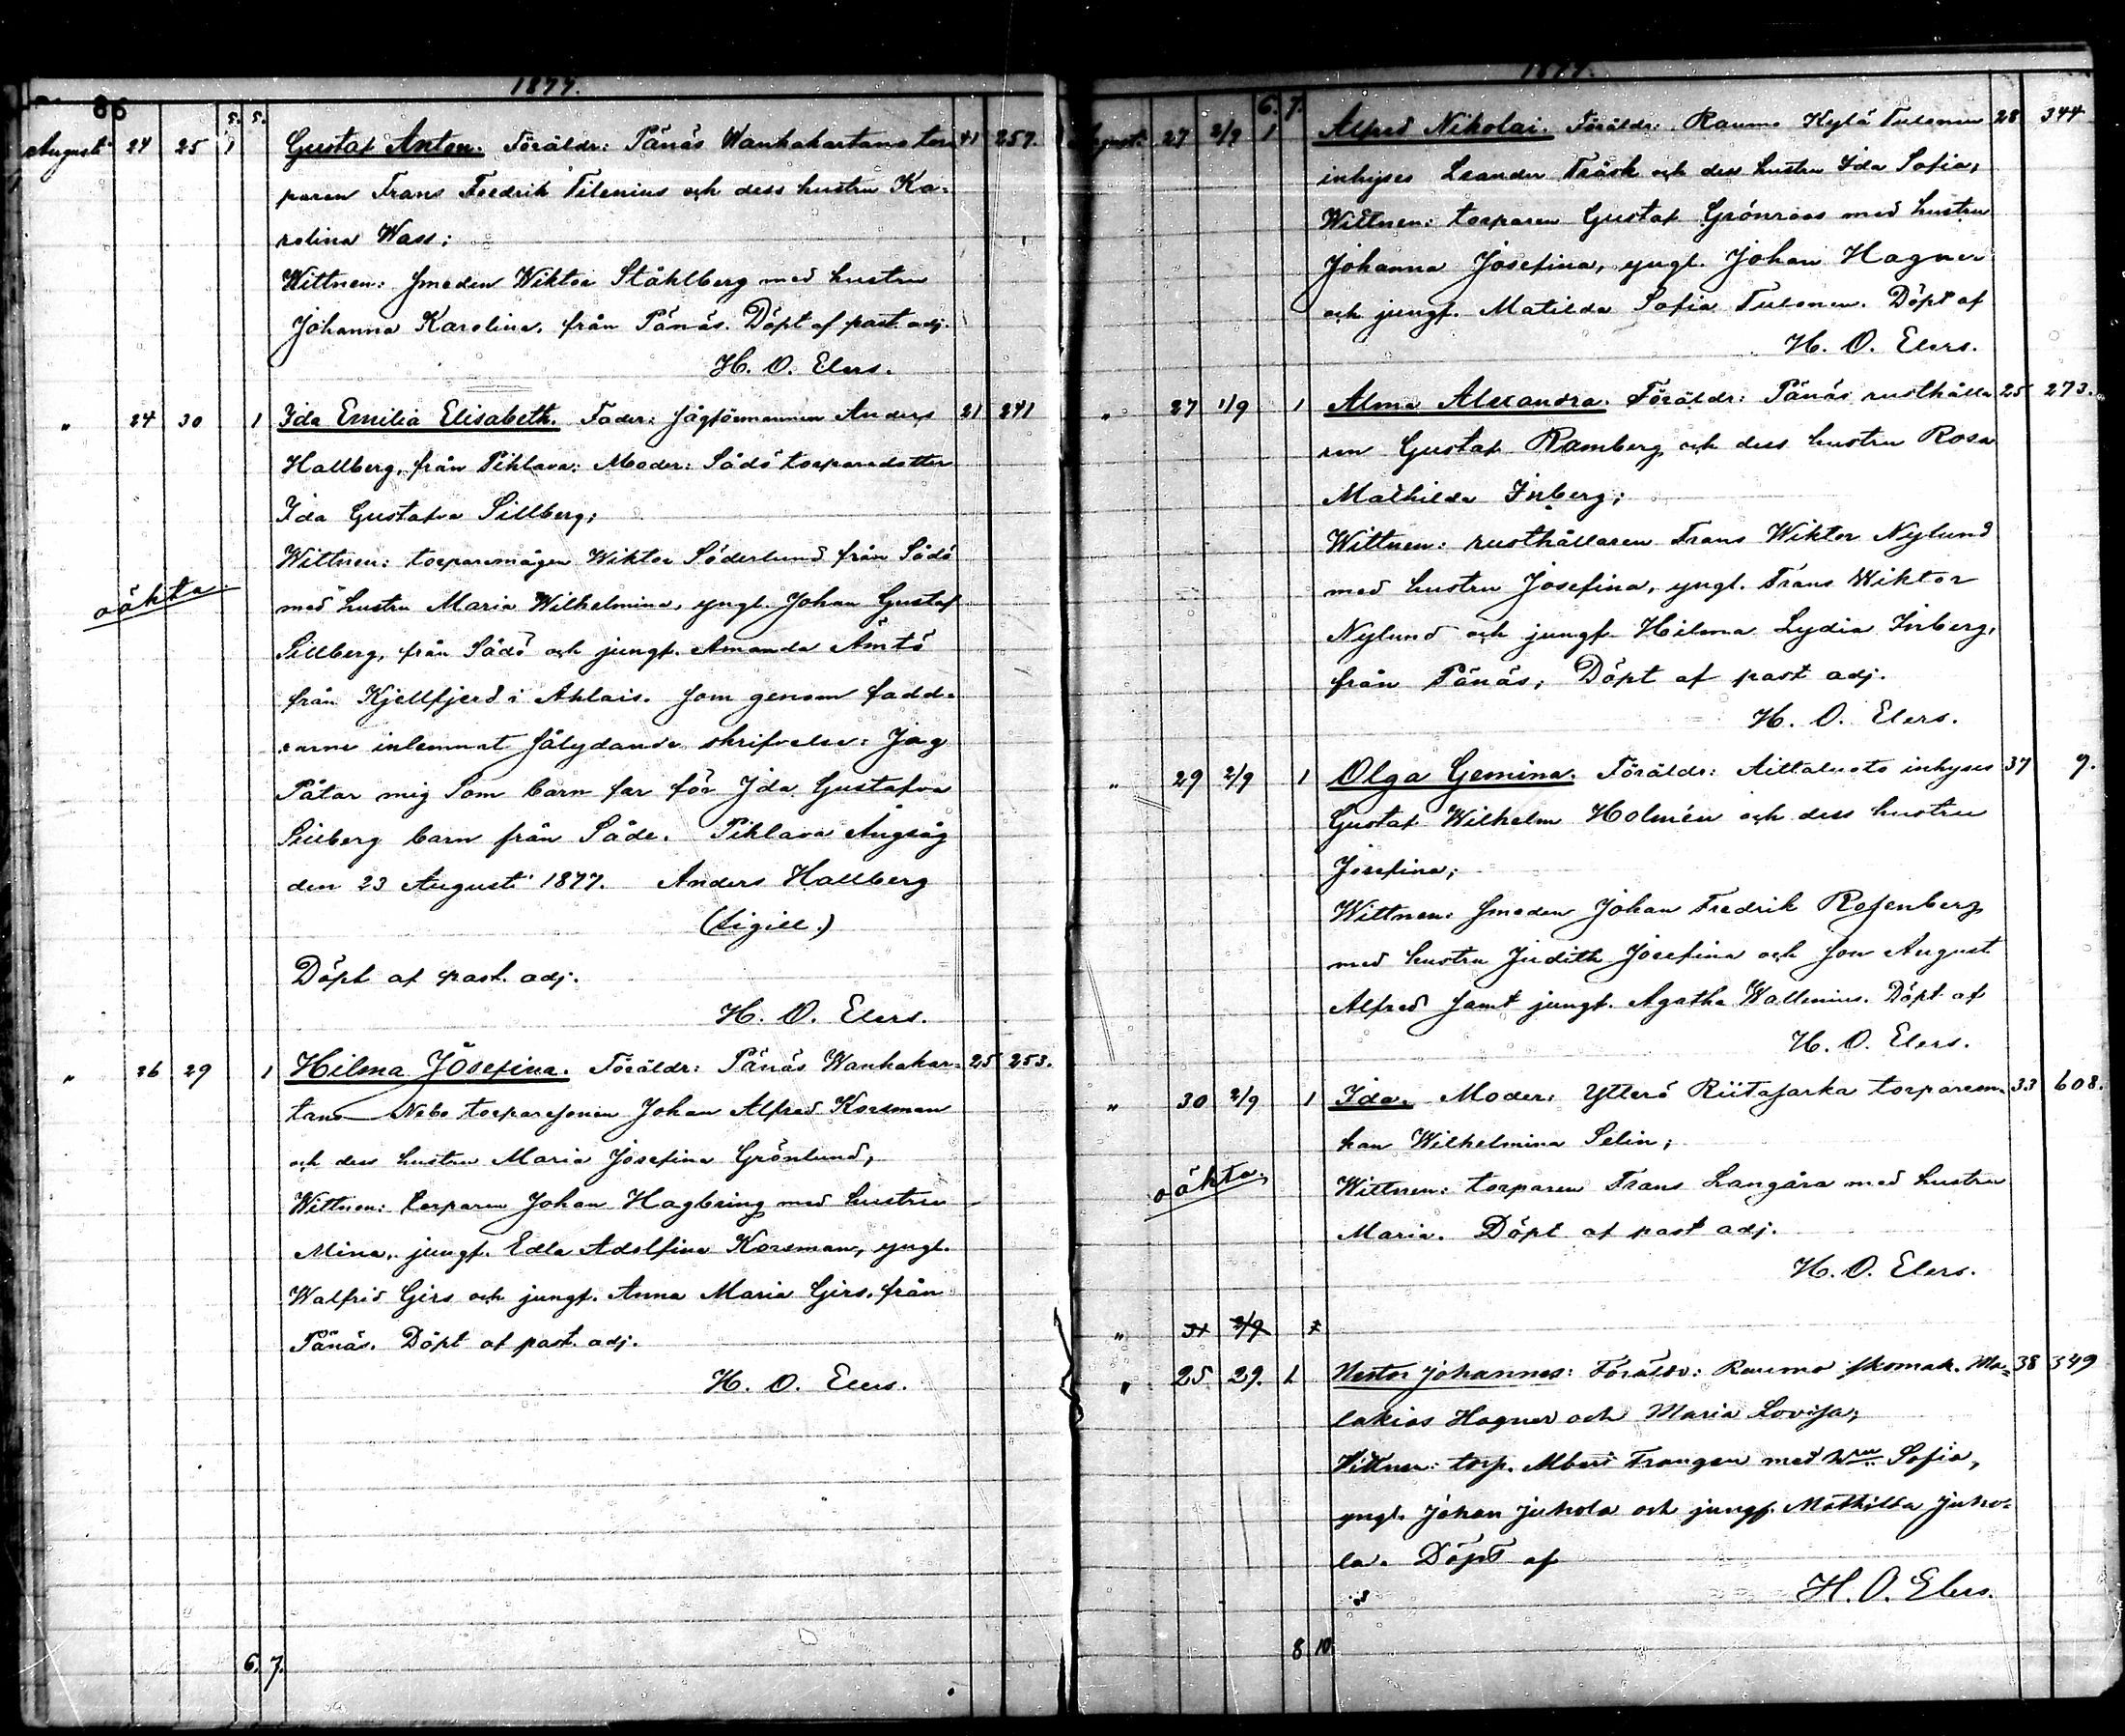 1877.
86
5. 5.
August 24 25 1 Gustaf Anton. Föräldr: Pänäs Wanhakartano tor 41 257.
paren Frans Fredrik Filenius och dess hustru Ka-
rolina Wass;
Wittnen: Smeden Wiktor Ståhlberg med hustru
Johanna Karolina, från Pänäs. Döpt af past. adj.
H. O. Elers.
" 24 30 1 Ida Emilia Elisabeth. Fader: Sågförmannen Anders 21 241
Hallberg, från Pihlava: Moder: Sådö torparedotter
Ida Gustafva Sillberg;
Wittnen: torparemågen Wiktor Söderlund från Sådö
oäkta
med hustru Maria Wilhelmina, yngl. Johan Gustaf
Sillberg, från Sådö och jungf. Amanda Ämtö
från Kjellfjerd i Ahlais. Som genom fadd-
rarne inlemnat sålydande skrifvelse: Jag
Påtar mig Som barn far för Ida Gustafva
Sillberg barn från Såde. Pihlava Ångsåg
den 23 Augusti 1877. Anders Hallberg
(Sigill.)
Döpt af past. adj.
H. O. Elers.
" 26 29 1 Hilma Josefina. Föräldr: Pänäs Wanhakar- 25 253.
tano Nebo torparesonen Johan Alfred Korsman
och dess hustru Maria Josefina Grönlund,
Wittnen: torparen Johan Hagbring med hustru
Mina, jungf. Edla Adolfina Korsman, yngl.
Walfrid Girs och jungf. Anna Maria Girs, från
Pänäs. Döpt af past. adj.
H. O. Elers.
6. 7.
1877.
6. 7.
August. 27 2/9 1 Alfred Nikolai. Föräldr: Raumo Kylä Tulonen 28 344
inhyses Leander Träsk och dess hustru Ida Sofia;
Wittnen: torparen Gustaf Grönroos med hustru
Johanna Josefina, yngl. Johan Hagner
och jungf. Matilda Sofia Tulonen. Döpt af
H. O. Elers.
" 27 1/9 1 Alma Alexandra. Föräldr: Pänäs rusthålla 25 273.
ren Gustaf Ramberg och dess hustru Rosa
Mathilda Inberg;
Wittnen: rusthållaren Frans Wiktor Nylund
med hustru Josefina, yngl. Frans Wiktor
Nylund och jungf. Hilma Lydia Inberg,
från Pänäs; Döpt af past adj.
H. O. Elers.
" 29 2/9 1 Olga Gemina. Föräldr: Aittaluoto inhyses 37 9.
Gustaf Wilhelm Holmén och dess hustru
Josefina;
Wittnen: Smeden Johan Fredrik Rosenberg
med hustru Judith Josefina och son August
Alfred samt jungf. Agatha Wallenius. Döpt af
H. O. Elers.
" 30 2/9 1 Ida. Moder: Ytterö Riitasarka torparem- 33 608.
kan Wilhelmina Selin;
oäkta.
Wittnen: torparen Frans Langåra med hustru
Maria. Döpt af past adj.
H. O. Elers.
" 31 2/9 1
" 25. 29. 1. Nestor Johannes: Föräldr: Raumo skomak. Ma- 38 349
lakias Hagner och Maria Lovisa;
Wittnen: torp. Albert Frangen med h:u Sofia,
yngl. Johan Juhola och jungf. Mathilda Juho-
la. Döpt af
H. O. Elers.
8 10